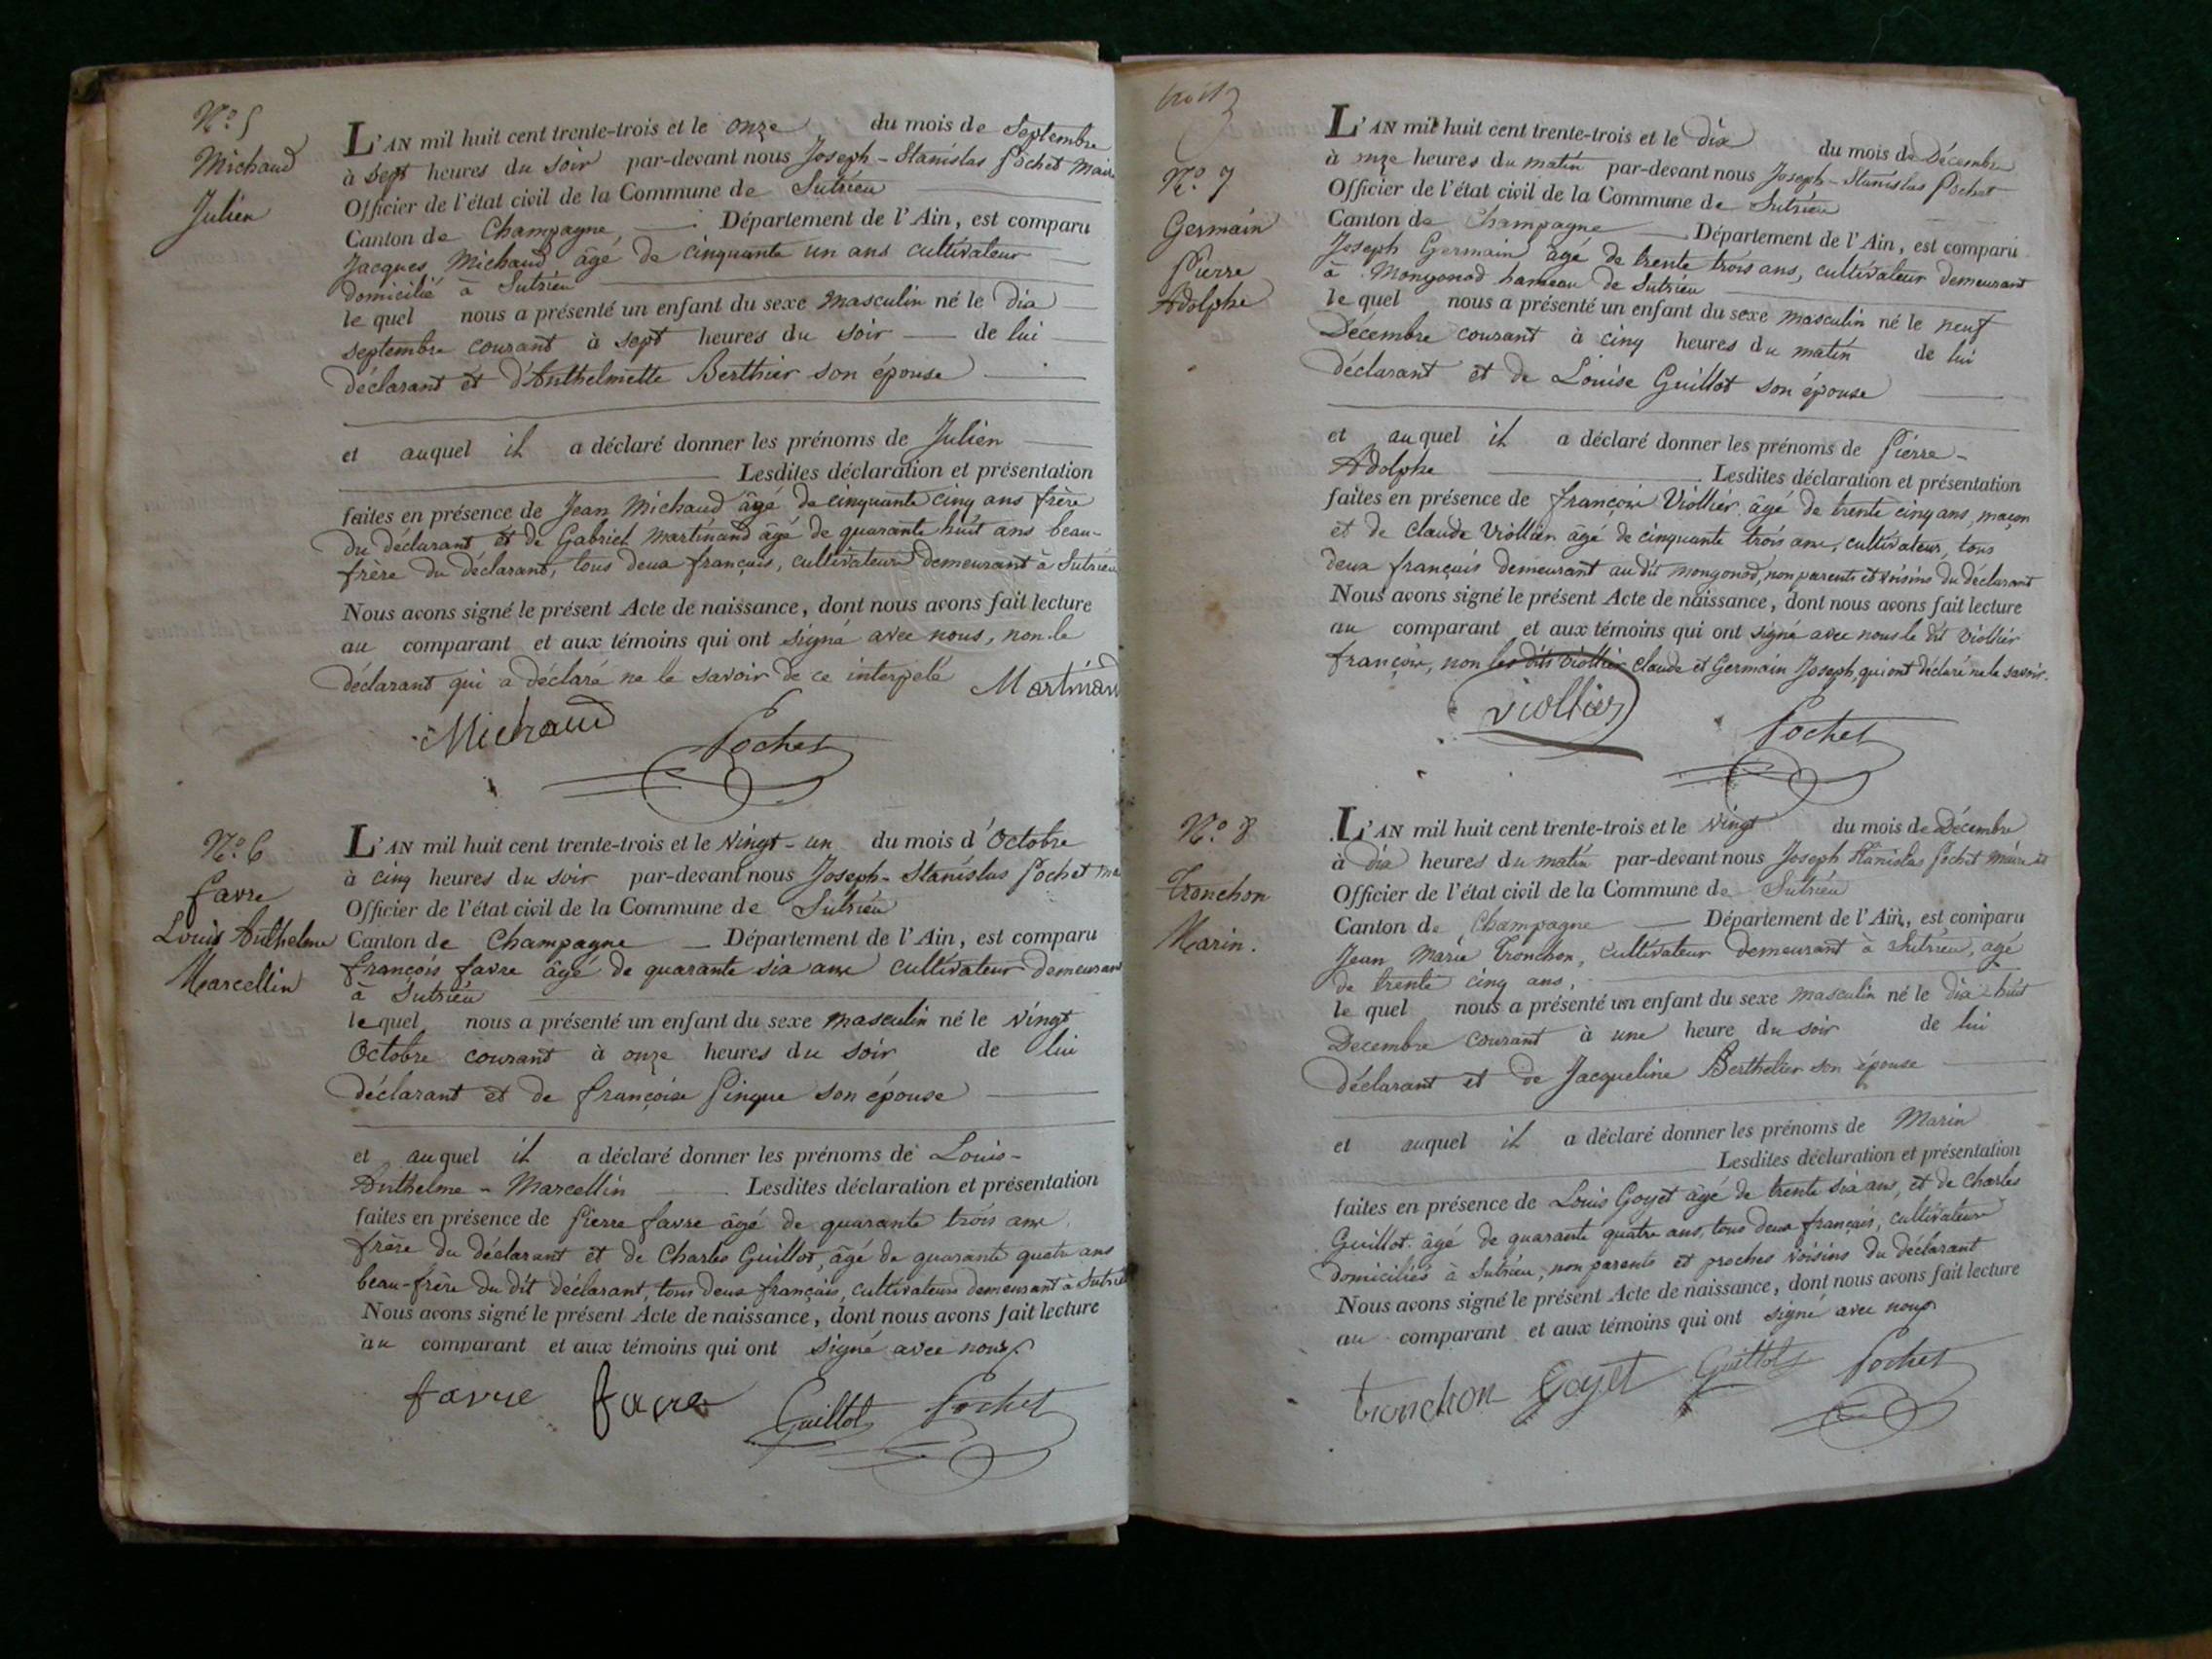 N.o 5
Michaud
Julien
L'AN mil huit cent trente-trois et le onze du mois de Septembre
à sept heures du soir par-devant nous Joseph-Stanislas Pochet Maire
Officier de l'état civil de la Commune de Sutrieu
Canton de Champagne, Département de l'Ain, est comparu
Jacques Michaud âgé de cinquante un ans cultivateur
domicilié à Sutrieu
lequel nous a présenté un enfant du sexe masculin né le dix
septembre courant à sept heures du soir de lui
déclarant et d'Anthelmette Berthier son épouse
et auquel il a déclaré donner les prénoms de Julien
Lesdites déclaration et présentation
faites en présence de Jean Michaud âgé de cinquante cinq ans frère
du déclarant et de Gabriel Martinand âgé de quarante huit ans beau-
frère du déclarant, tous deux français, cultivateurs demeurant à Sutrieu
Nous avons signé le présent Acte de naissance, dont nous avons fait lecture
au comparant et aux témoins qui ont signé avec nous, non le
déclarant qui a déclaré ne le savoir de ce interpelé Martinand
Michaud
Pochet
N.o 6
favre
Louis Anthelme
Marcellin
L'AN mil huit cent trente-trois et le vingt-un du mois d'Octobre
à cinq heures du soir par-devant nous Joseph-Stanislas Pochet ma
Officier de l'état civil de la Commune de Sutrieu
Canton de Champagne Département de l'Ain, est comparu
françois favre âgé de quarante six ans cultivateur demeurant
à Sutrieu
lequel nous a présenté un enfant du sexe masculin né le vingt
Octobre courant à onze heures du soir de lui
déclarant et de françoise Pinque son épouse
et auquel il a déclaré donner les prénoms de Louis-
Anthelme-Marcellin Lesdites déclaration et présentation
faites en présence de Pierre favre âgé de quarante trois ans
frère du déclarant et de Charles Guillot, âgé de quarante quatre ans
beau-frère du dit déclarant, tous deux français, cultivateurs demeurant à Sutrieu
Nous avons signé le présent Acte de naissance, dont nous avons fait lecture
au comparant et aux témoins qui ont signé avec nous
favre favre Guillot Pochet
trois 3
N.o 7
Germain
Pierre
Adolphe
L'AN mil huit cent trente-trois et le dix du mois de Décembre
à onze heures du matin par-devant nous Joseph-Stanislas Pochet
Officier de l'état civil de la Commune de Sutrieu
Canton de Champagne Département de l'Ain, est comparu
Joseph Germain âgé de trente trois ans, cultivateur demeurant
à Mongonod hameau de Sutrieu
lequel nous a présenté un enfant du sexe masculin né le neuf
Décembre courant à cinq heures du matin de lui
déclarant et de Louise Guillot son épouse
et auquel il a déclaré donner les prénoms de Pierre-
Adolphe Lesdites déclaration et présentation
faites en présence de françois Viollier, âgé de trente cinq ans, maçon
et de Claude Viollier âgé de cinquante trois ans, cultivateur, tous
deux français demeurant au dit mongonod, non parents et voisins du déclarant
Nous avons signé le présent Acte de naissance, dont nous avons fait lecture
au comparant et aux témoins qui ont signé avec nous le dit viollier
françois, non les dits viollier claude et Germain Joseph, qui ont déclaré ne le savoir.
viollier
Pochet
N.o 8
Tronchon
Marin.
L'AN mil huit cent trente-trois et le vingt du mois de Décembre
à dix heures du matin par-devant nous Joseph Stanislas Pochet maire et
Officier de l'état civil de la Commune de Sutrieu
Canton de Champagne Département de l'Ain, est comparu
Jean Marie Tronchon, cultivateur demeurant à Sutrieu, agé
de trente cinq ans,
lequel nous a présenté un enfant du sexe masculin né le dix-huit
Decembre courant à une heure du soir de lui
déclarant et de Jacqueline Berthelier son épouse
et auquel il a déclaré donner les prénoms de Marin
Lesdites déclaration et présentation
faites en présence de Louis Goyet âgé de trente six ans, et de Charles
Guillot âgé de quarante quatre ans, tous deux français, cultivateurs
domiciliés à Sutrieu, non parents et proches voisins du déclarant
Nous avons signé le présent Acte de naissance, dont nous avons fait lecture
au comparant et aux témoins qui ont signé avec nous
tronchon Goyet Guillot Pochet